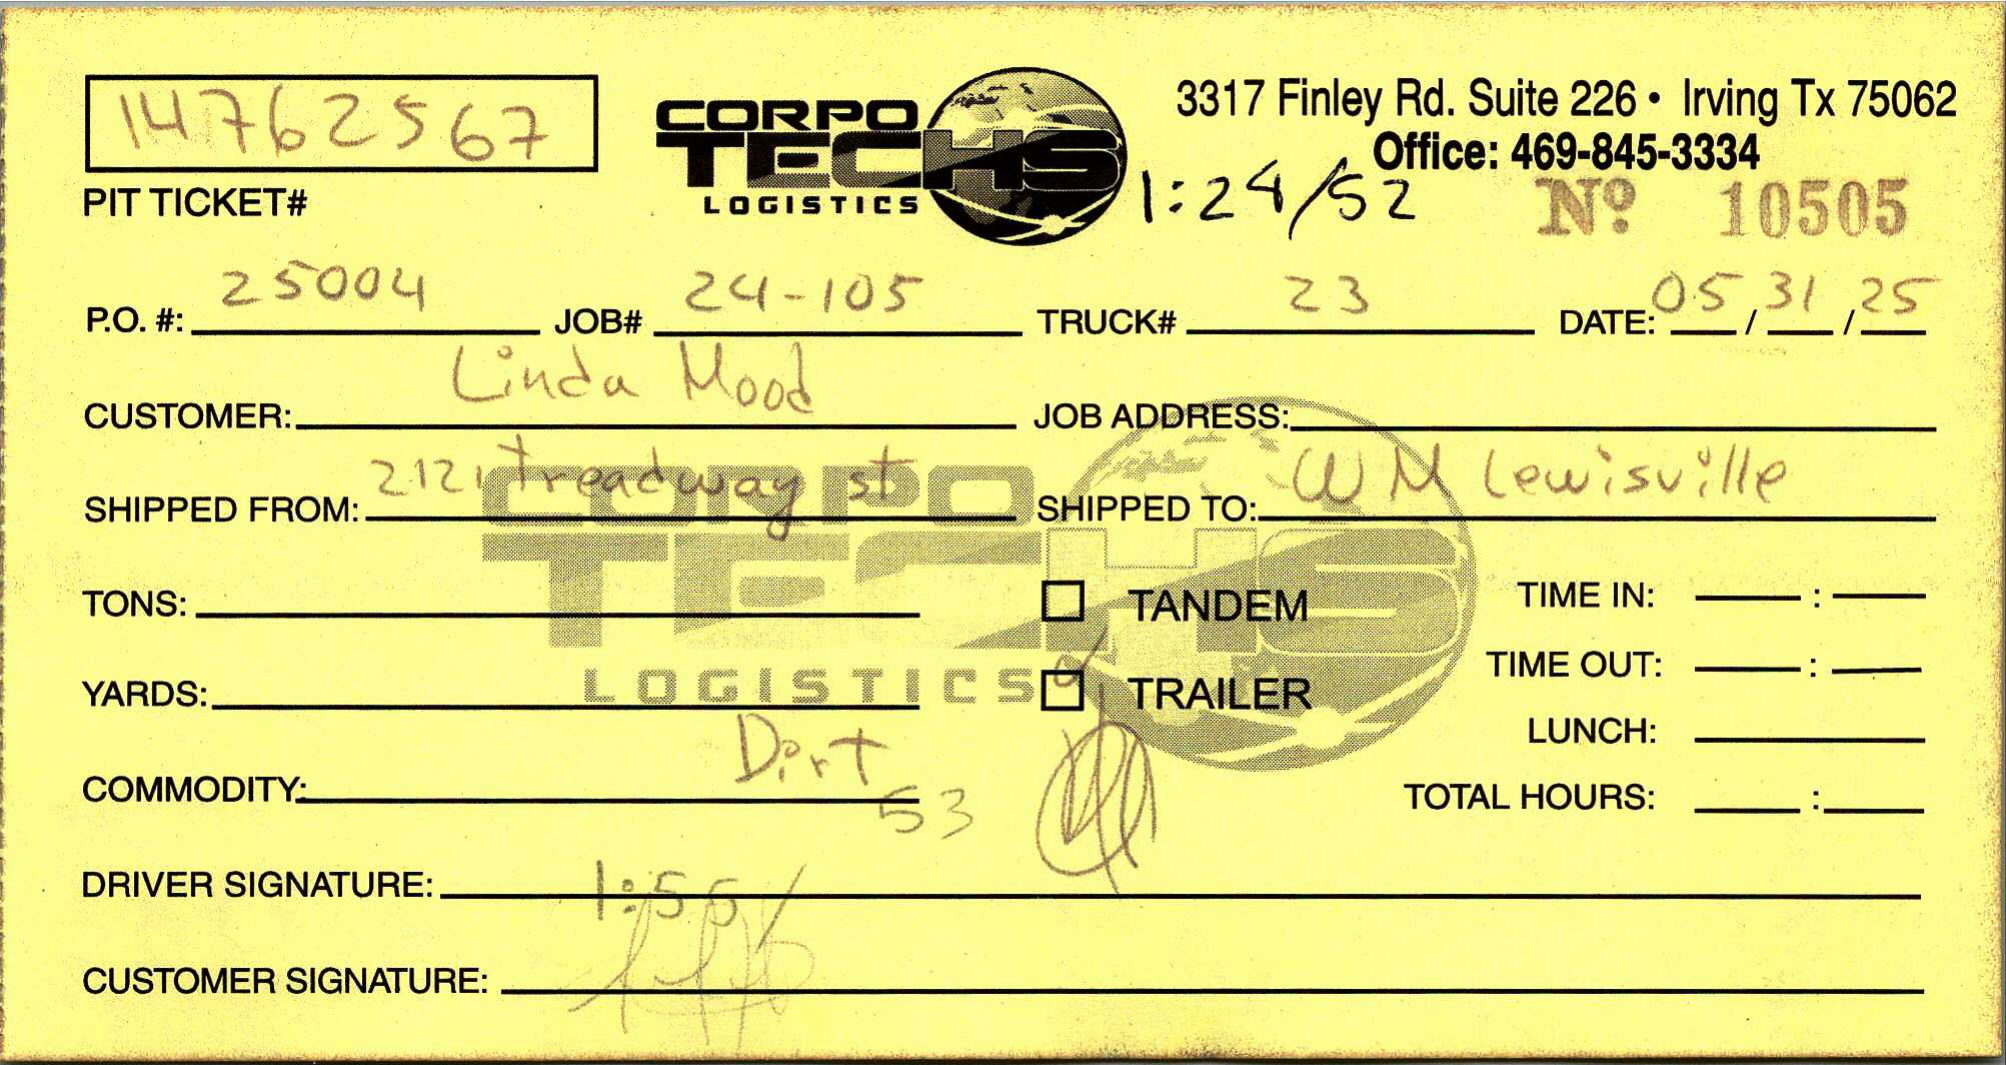 14762567
PIT TICKET#
CORPO
TECHS
LOGISTICS
3317 Finley Rd. Suite 226 • Irving Tx 75062
Office: 469-845-3334
1:24/52
Nº 10505
P.O. #: 25004 JOB# 24-105 TRUCK# 23 DATE: 05/31/25
CUSTOMER: Linda Mood JOB ADDRESS:
SHIPPED FROM: 2121 treadway st SHIPPED TO: WM Lewisville
CORPO
TECHS
LOGISTICS
TONS: TANDEM TIME IN: :
YARDS: TRAILER TIME OUT: :
LUNCH:
COMMODITY: Dirt TOTAL HOURS: :
53
DRIVER SIGNATURE:
1:55/
CUSTOMER SIGNATURE: